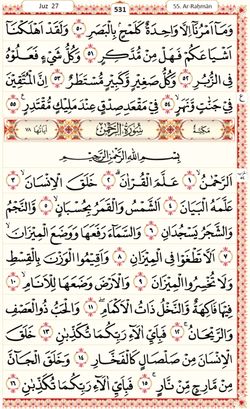 Juz 27 531 55. Ar-Rahmān
وَمَآ أَمْرُنَآ إِلَّا وَٰحِدَةٌ كَلَمْحٍۭ بِٱلْبَصَرِ ٥٠ وَلَقَدْ أَهْلَكْنَآ
أَشْيَاعَكُمْ فَهَلْ مِن مُّدَّكِرٍ ٥١ وَكُلُّ شَىْءٍ فَعَلُوهُ
فِى ٱلزُّبُرِ ٥٢ وَكُلُّ صَغِيرٍ وَكَبِيرٍ مُّسْتَطَرٌ ٥٣ إِنَّ ٱلْمُتَّقِينَ
فِى جَنَّٰتٍ وَنَهَرٍ ٥٤ فِى مَقْعَدِ صِدْقٍ عِندَ مَلِيكٍ مُّقْتَدِرٍۭ ٥٥
مَكِّيَّة سُورَةُ الرَّحْمٰن آياتها ٧٨
بِسْمِ ٱللَّهِ ٱلرَّحْمَٰنِ ٱلرَّحِيمِ
ٱلرَّحْمَٰنُ ١ عَلَّمَ ٱلْقُرْءَانَ ٢ خَلَقَ ٱلْإِنسَٰنَ ٣
عَلَّمَهُ ٱلْبَيَانَ ٤ ٱلشَّمْسُ وَٱلْقَمَرُ بِحُسْبَانٍ ٥ وَٱلنَّجْمُ
وَٱلشَّجَرُ يَسْجُدَانِ ٦ وَٱلسَّمَآءَ رَفَعَهَا وَوَضَعَ ٱلْمِيزَانَ ٧
أَلَّا تَطْغَوْا۟ فِى ٱلْمِيزَانِ ٨ وَأَقِيمُوا۟ ٱلْوَزْنَ بِٱلْقِسْطِ
وَلَا تُخْسِرُوا۟ ٱلْمِيزَانَ ٩ وَٱلْأَرْضَ وَضَعَهَا لِلْأَنَامِ ١٠
فِيهَا فَٰكِهَةٌ وَٱلنَّخْلُ ذَاتُ ٱلْأَكْمَامِ ١١ وَٱلْحَبُّ ذُو ٱلْعَصْفِ
وَٱلرَّيْحَانُ ١٢ فَبِأَىِّ ءَالَآءِ رَبِّكُمَا تُكَذِّبَانِ ١٣ خَلَقَ
ٱلْإِنسَٰنَ مِن صَلْصَٰلٍ كَٱلْفَخَّارِ ١٤ وَخَلَقَ ٱلْجَآنَّ
مِن مَّارِجٍ مِّن نَّارٍ ١٥ فَبِأَىِّ ءَالَآءِ رَبِّكُمَا تُكَذِّبَانِ ١٦